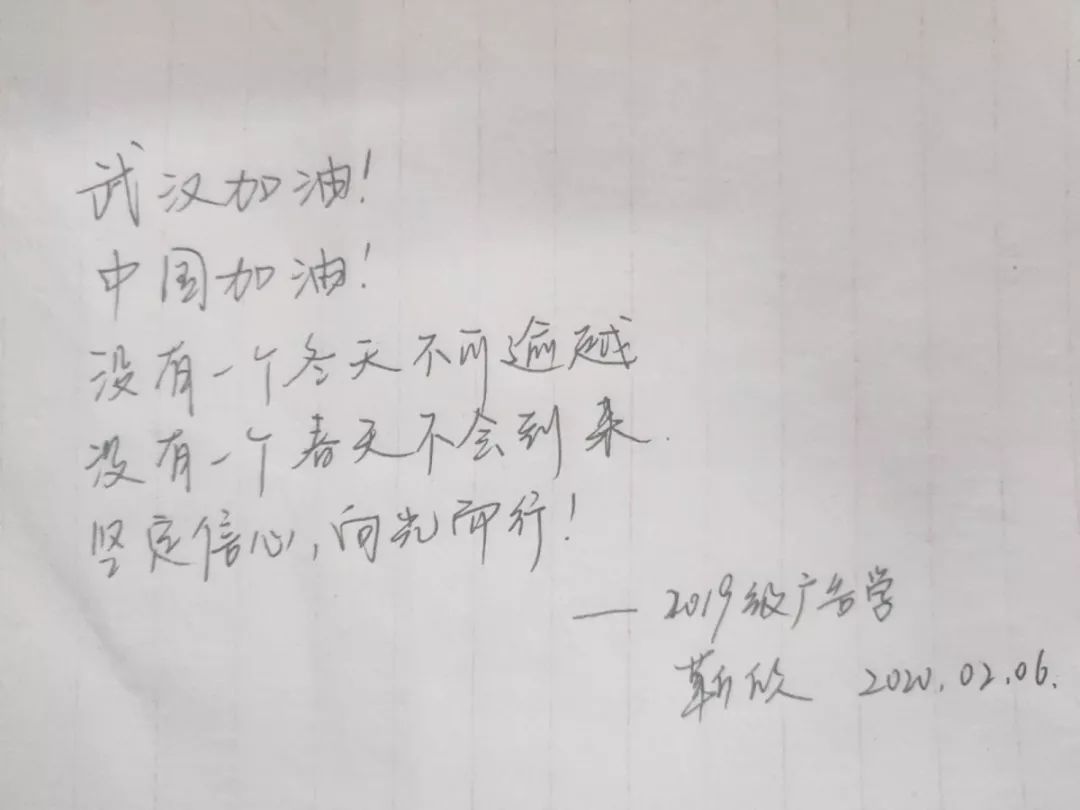 武汉加油!
中国加油!
没有一个冬天不可逾越
没有一个春天不会到来.
坚定信心,向光而行!
— 2019级广告学
靳欣 2020.02.06.